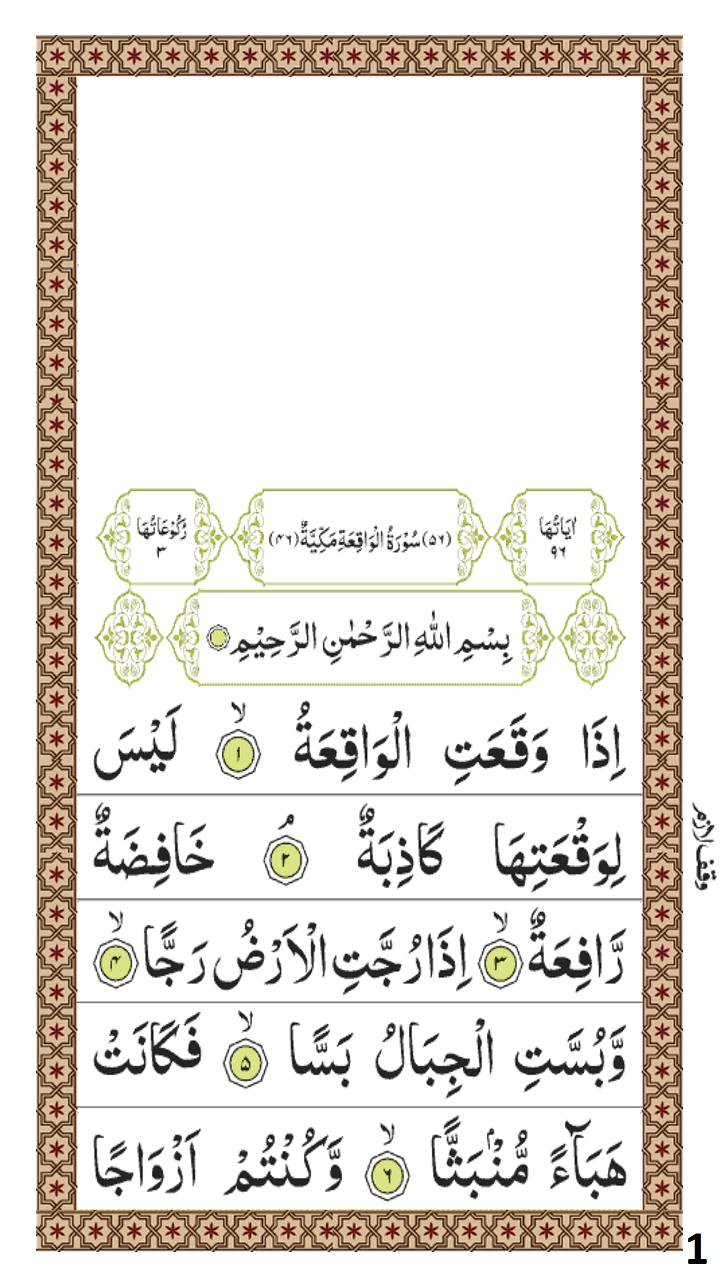 اٰيَاتُهَا ٩٦
(٥٦) سُوْرَةُ الْوَاقِعَةِ مَكِّيَّةٌ (٤٦)
رُكُوْعَاتُهَا ٣
بِسْمِ اللّٰهِ الرَّحْمٰنِ الرَّحِيْمِ
اِذَا وَقَعَتِ الْوَاقِعَةُ ۙ‏﴿۱﴾ لَيْسَ
لِوَقْعَتِهَا كَاذِبَةٌ ۘ‏﴿۲﴾ خَافِضَةٌ
وقف لازم
رَّافِعَةٌ ۙ‏﴿۳﴾ اِذَا رُجَّتِ الْاَرْضُ رَجًّا ۙ‏﴿۴﴾
وَّبُسَّتِ الْجِبَالُ بَسًّا ۙ‏﴿۵﴾ فَكَانَتْ
هَبَآءً مُّنْۢبَثًّا ۙ‏﴿۶﴾ وَّكُنْتُمْ اَزْوَاجًا
1